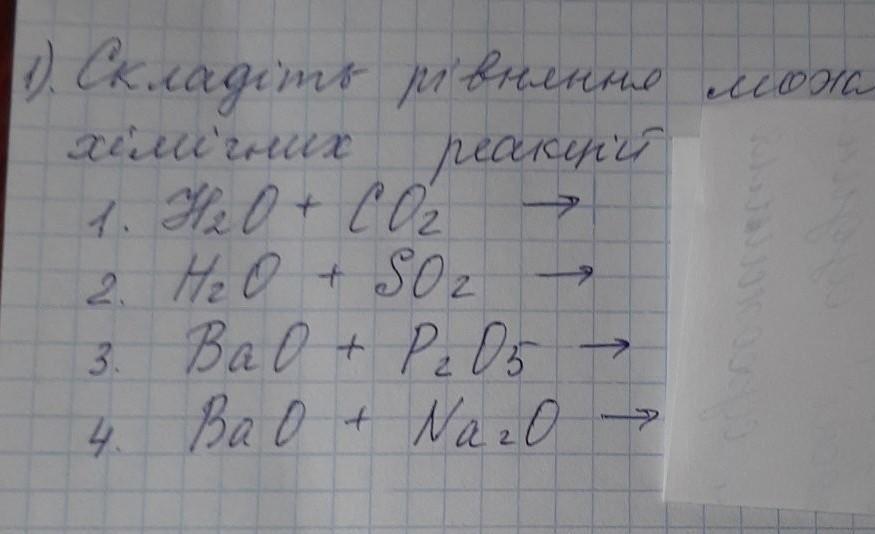 1). Складіть рівняння можл
хімічних реакцій
1. H₂O + CO₂ →
2. H₂O + SO₂ →
3. BaO + P₂O₅ →
4. BaO + Na₂O →